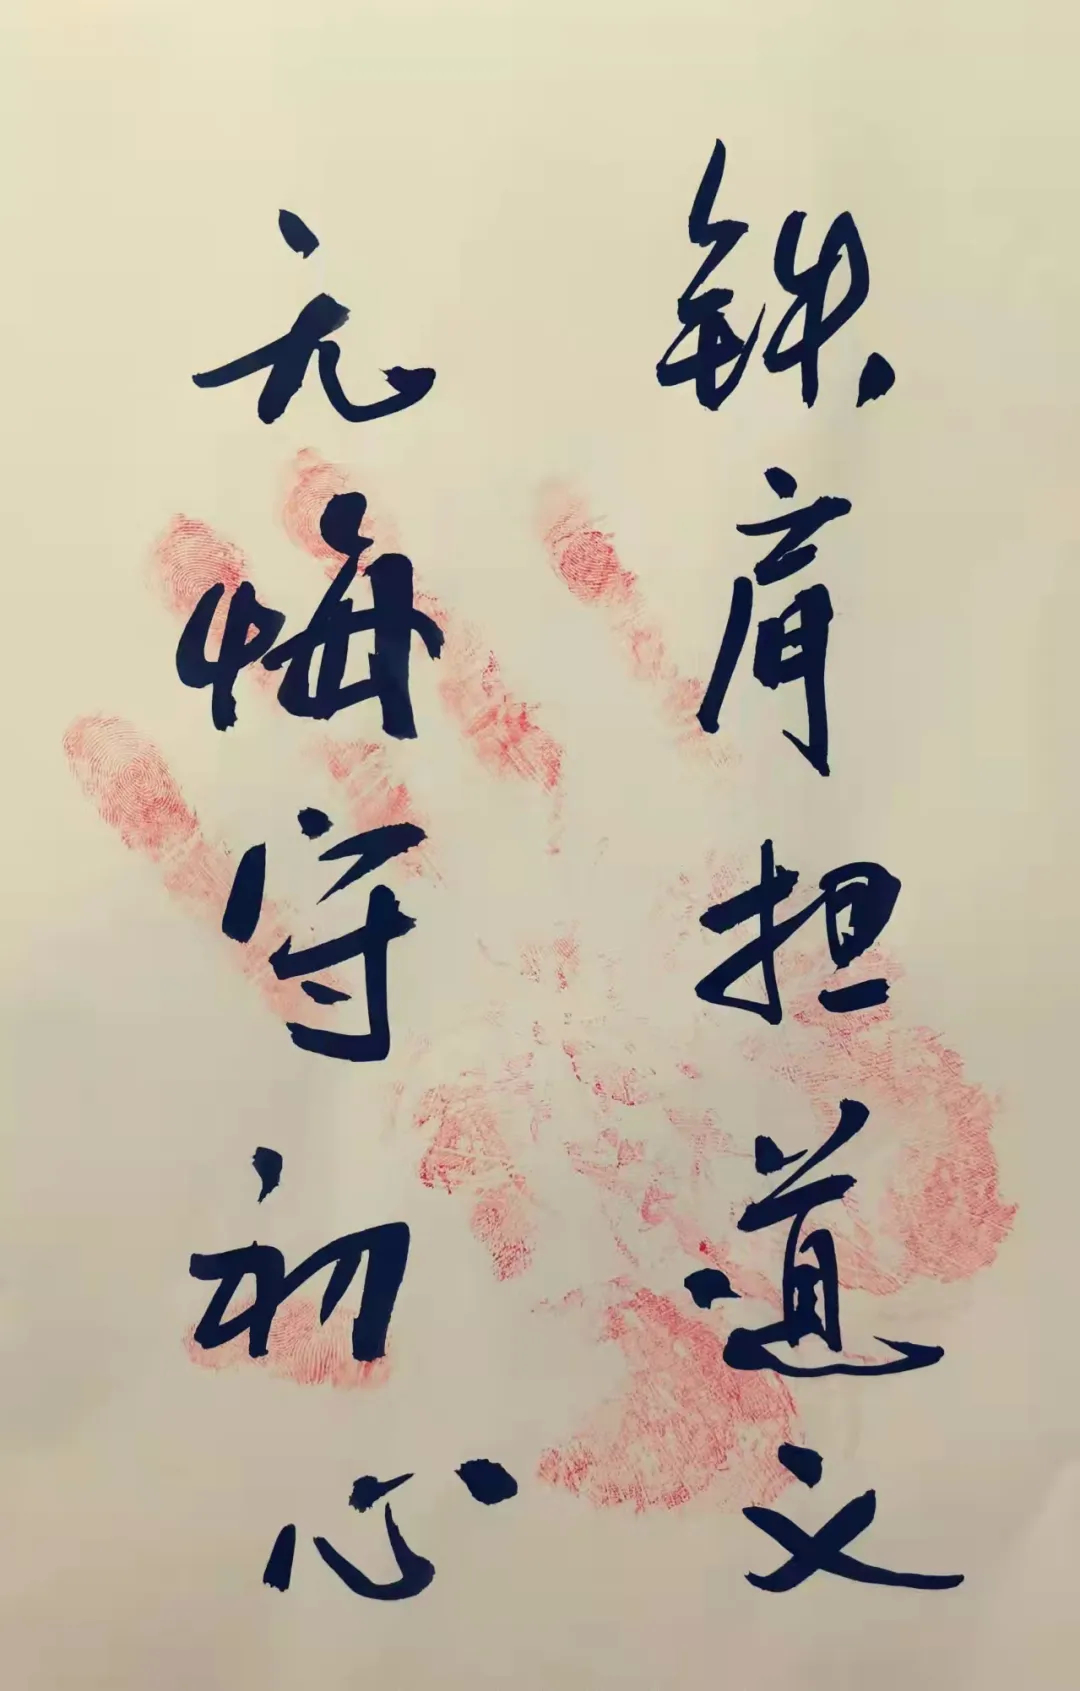 铁肩担道义
无悔守初心